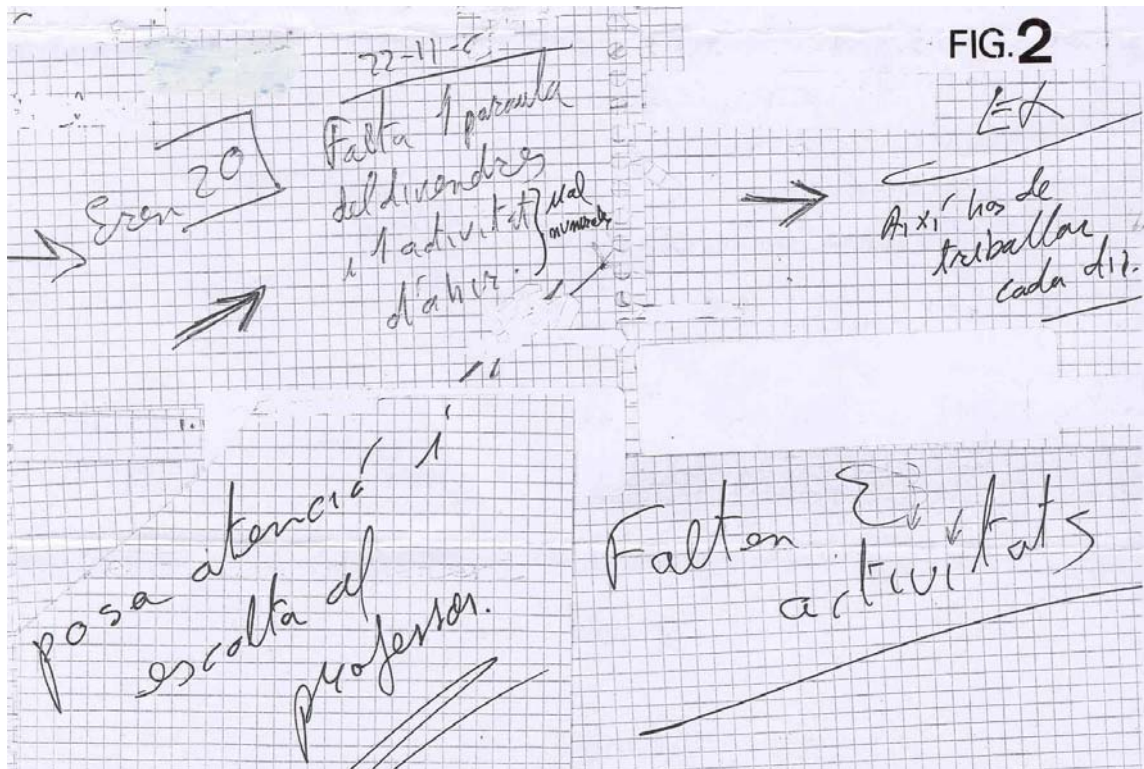 FIG. 2
22-11-
Eren 20
Falta 1 paraula
del divendres
i 1 activitat } Mal
numerades
d'ahir.
Així has de
treballar
cada dia.
posa atenció i
escolta al
professor.
Falten
activitats